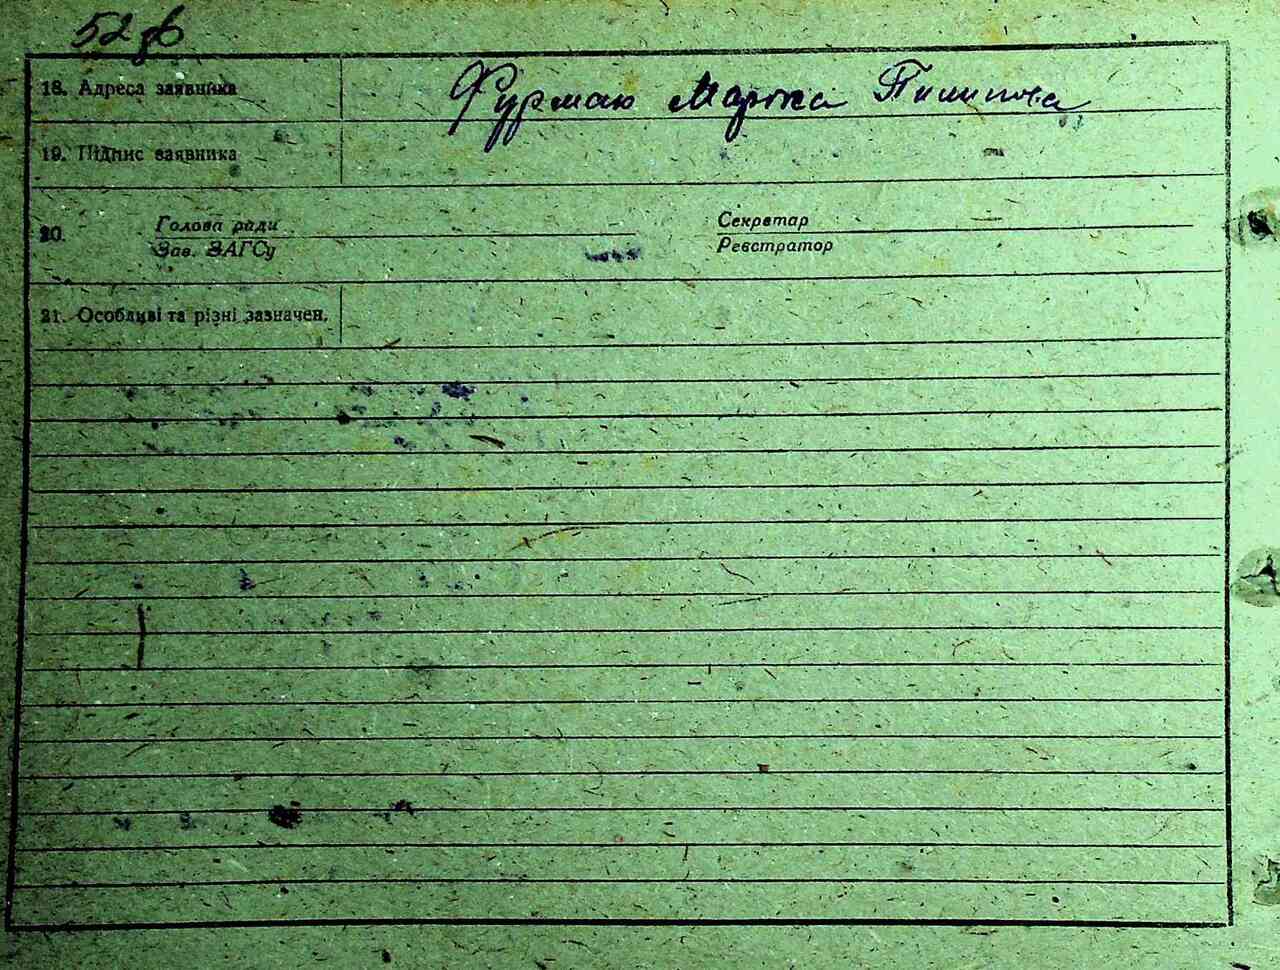 52 зв
18. Адреса заявника Фурман Марта Пилипова
19. Підпис заявника
20. Голова ради Секретар
Зав. ЗАГСу Реєстратор
21. Особливі та різні зазначен.